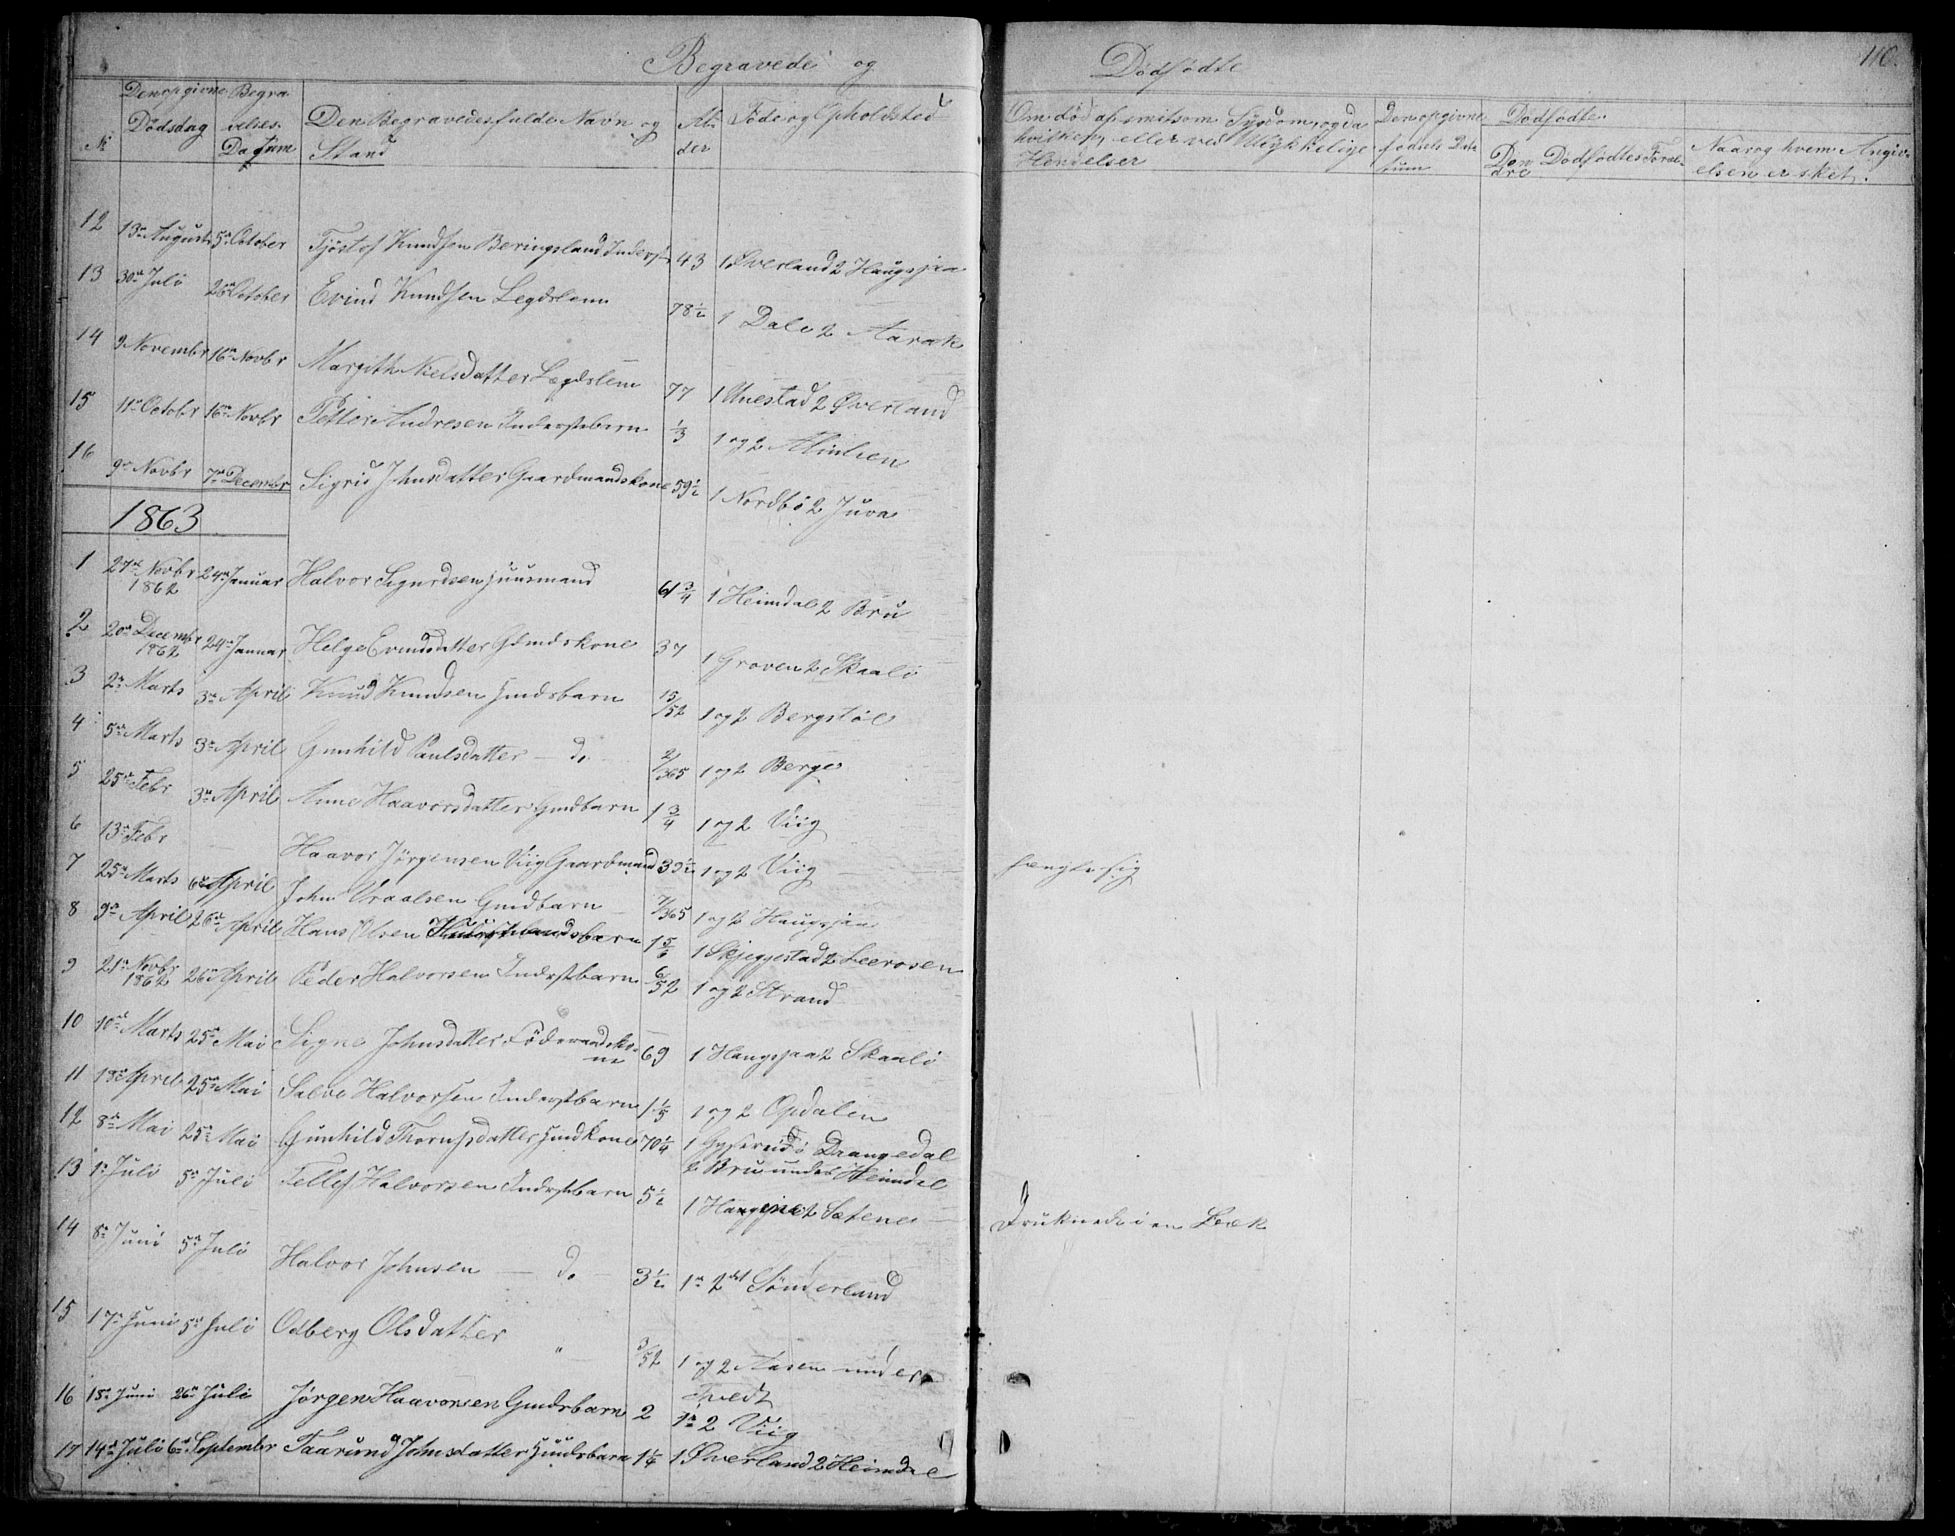 Begravede og
Dødfødte
110.
№
Den opgivne Dødsdag
Begravelses-Datum
Den Begravedes fulde Navn og Stand
Alder
Føde og Opholdsted
Om død af smitsom Sygdom, og da hvilken, eller ved Ulykkelige Hændelser
Den opgivne fødsels Datum
Dødfødte.
Den Dødfødtes Forældre
Naar og hvem Angivelsen er sket.
12 13de August 5te October Tjöstof Knudsen Beringsland Inderst 43 1 Øverland 2 Haugsjaa
13 30te Juli 26de October Evind Knudsen Legdslem 78 1/2 1 Dale 2 Aarak
14 9 Novembr 16de Novbr Margith Nielsdatter Lægdslem 77 1 Unestad 2 Øverland
15 11te Octobr 16de Novbr Petter Andresen Inderstbarn 1/3 1 og 2
16 9de Novbr 7de Decembr Sigrid Johnsdatter Gaardmandskone 59 1/2 1 Nordbö 2 Juva
1863
1 27de Novbr 1862 24de Januar Halvor Sigurdsen Huusmand 61 3/4 1 Heimdal 2 Bru
2 20de Decembr 1862 24de Januar Helge Evindsdatter Gmdskone 37 1 Groven 2 Skaali
3 2den Marts 3die April Knud Knudsen Hmdsbarn 15/52 1 og 2 Bergstöl
4 5te Marts 3die April Gunhild Paulsdatter — do 2/365 1 og 2 Berge
5 25de Febr 3die April Anne Haavorsdatter Gmdbarn 1 3/4 1 og 2 Viig
6 13de Febr Haavor Jörgensen Viig Gaardmand 39 1/2 1 og 2 Viig
7 25de Marts 6te April John Vraalsen Gmdbarn 7/365 1 og 2 Haugsjaa
8 9de April 26de April Hans Olsen Huusmandsbarn 1 5/6 1 Skjeggestad 2 Leerosen
9 21de Novbr 1862 26de April Peder Halvorsen Inderstbarn 6/52 1 og 2 Strand
10 10de Marts 25de Mai Signe Johnsdatter Föderaadskone 69 1 Haugsjaa 2 Skaali
11 13de April 25de Mai Salve Halvorsen Inderstbarn 1 1/5 1 og 2 Opdalen
12 8de Mai 25de Mai Gunhild Thomsdatter Hmdkone 70 1/4 1 i Drangedal
2 Bru under Heimdal
13 1ste Juli 5te Juli Tellef Halvorsen Inderstbarn 5 1/2 1 Haugsjaa 2 Sætenes
14 8de Juni 5te Juli Halvor Johnsen — do — 3 1/2 1te 2det Sönderland
15 17de Juni 5te Juli Odberg Olsdatter " 3/52 1 og 2 Aasen under Tvedt
16 18de Juni 26de Juli Jörgen Haavorsen Gmdsbarn 2 1te 2 Viig
17 14de Juli 6te September Taarund Johnsdatter Huudsbarn 1 1/4 1 Øverland 2 Heimdal
hængte sig
Druknede i en Bæk